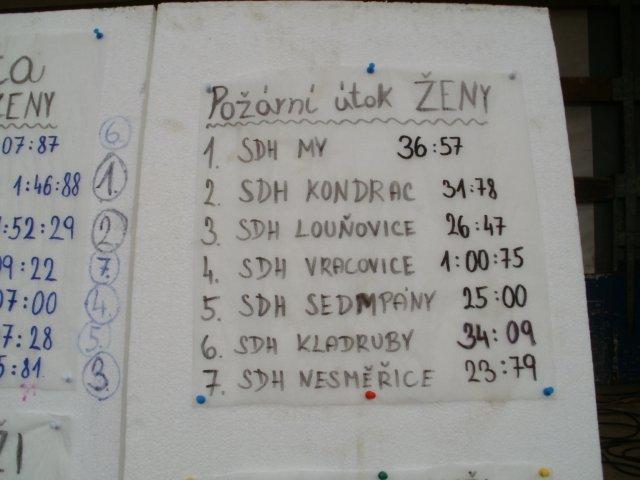 ŽENY
07:87 6
1:46:88 1.
:52:29 2
09:22 7.
07:00 4
7:28 5
5:81 3
Požární útok ŽENY
1. SDH MY 36:57
2. SDH KONDRAC 31:78
3. SDH LOUŇOVICE 26:47
4. SDH VRACOVICE 1:00:75
5. SDH SEDMPÁNY 25:00
6. SDH KLADRUBY 34:09
7. SDH NESMĚŘICE 23:79